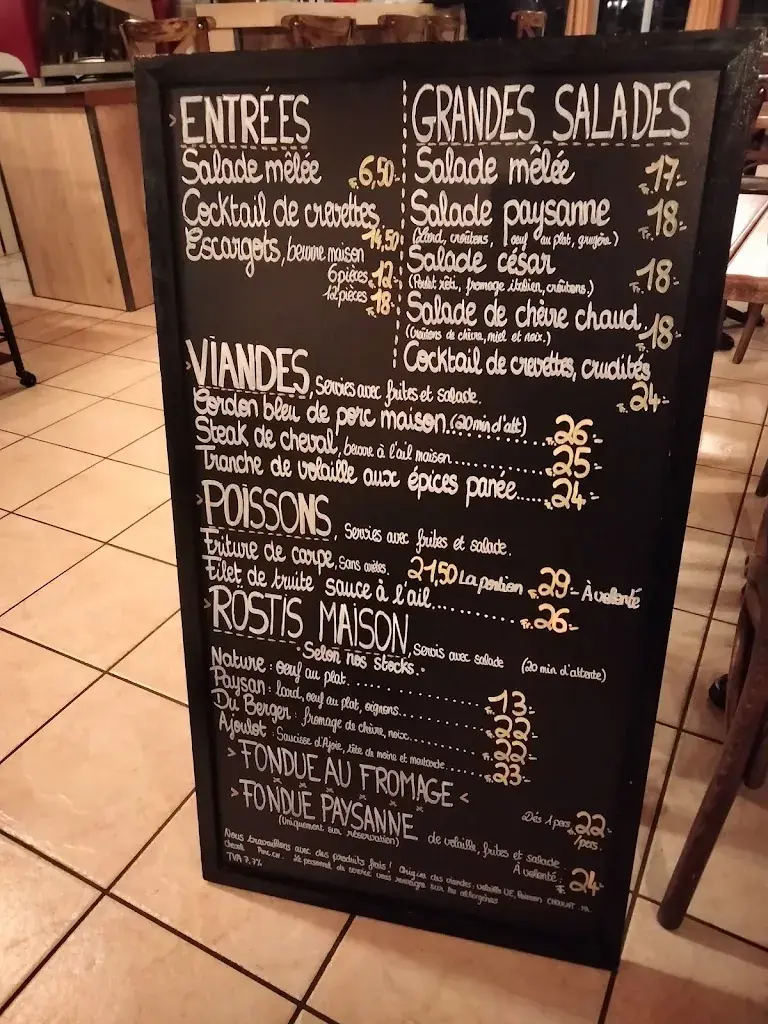 ENTRÉES
Salade mêlée 6,50.-
Cocktail de crevettes
14,50
Escargots, beurre maison
6 pièces 12.-
12 pièces 18.-
GRANDES SALADES
Salade mêlée Fr. 17.-
Salade paysanne Fr. 18.-
(Lard, croûtons, oeuf au plat, gruyère)
Salade césar Fr. 18.-
(Poulet rôti, fromage italien, croûtons.)
Salade de chèvre chaud Fr. 18.-
(Croûtons de chèvre, miel et noix.)
Cocktail de crevettes, crudités
Fr. 24.-
VIANDES, Servies avec frites et salade.
Cordon bleu de porc maison (20 min d'att) 26.-
Steak de cheval, beurre à l'ail maison 25.-
Tranche de volaille aux épices panée 24.-
POISSONS, Servies avec frites et salade.
Friture de carpe, Sans arêtes. 21,50 La portion Fr. 29.- À volonté
Filet de truite sauce à l'ail Fr. 26.-
RÖSTIS MAISON, Servis avec salade (20 min d'attente)
"Selon nos stocks."
Nature : oeuf au plat 13.-
Paysan : lard, oeuf au plat, oignons 22.-
Du Berger : fromage de chèvre, noix 22.-
Ajoulot : Saucisse d'Ajoie, tête de moine et moutarde Fr. 23.-
> FONDUE AU FROMAGE <
Dès 1 pers. 22.-
/pers.
> FONDUE PAYSANNE de volaille, frites et salade
(Uniquement sur réservation) À volonté : Fr. 24.-
Nous travaillons avec des produits frais ! Origine des viandes : volaille UE, Poisson
cheval Porc CH. Le personnel de service vous renseigne sur les allergènes
TVA 7,7%